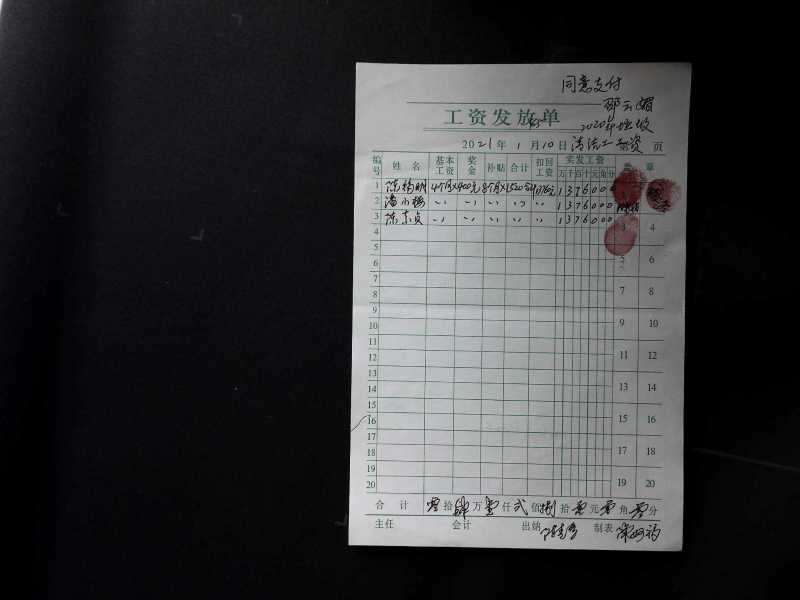 同意支付
邵云娟
工资发放单
2020年垃圾
2021年 1月10日 清洁工工资 页
编号 姓名 基本工资 奖金 补贴 合计 扣回工资 实发工资 签章
万千百十元角分
1 4个月×400元 8个月×1520元 1376000
2 潘小梅 〃 〃 〃 〃 〃 1376000
3 陈东贞 〃 〃 〃 〃 〃 1376000 3 4
4
5 5 6
6
7 7 8
8
9 9 10
10
11 11 12
12
13 13 14
14
15 15 16
16
17 17 18
18
19 19 20
20
合计 零拾肆万壹仟弍佰捌拾零元零角零分
主任 会计 出纳 制表